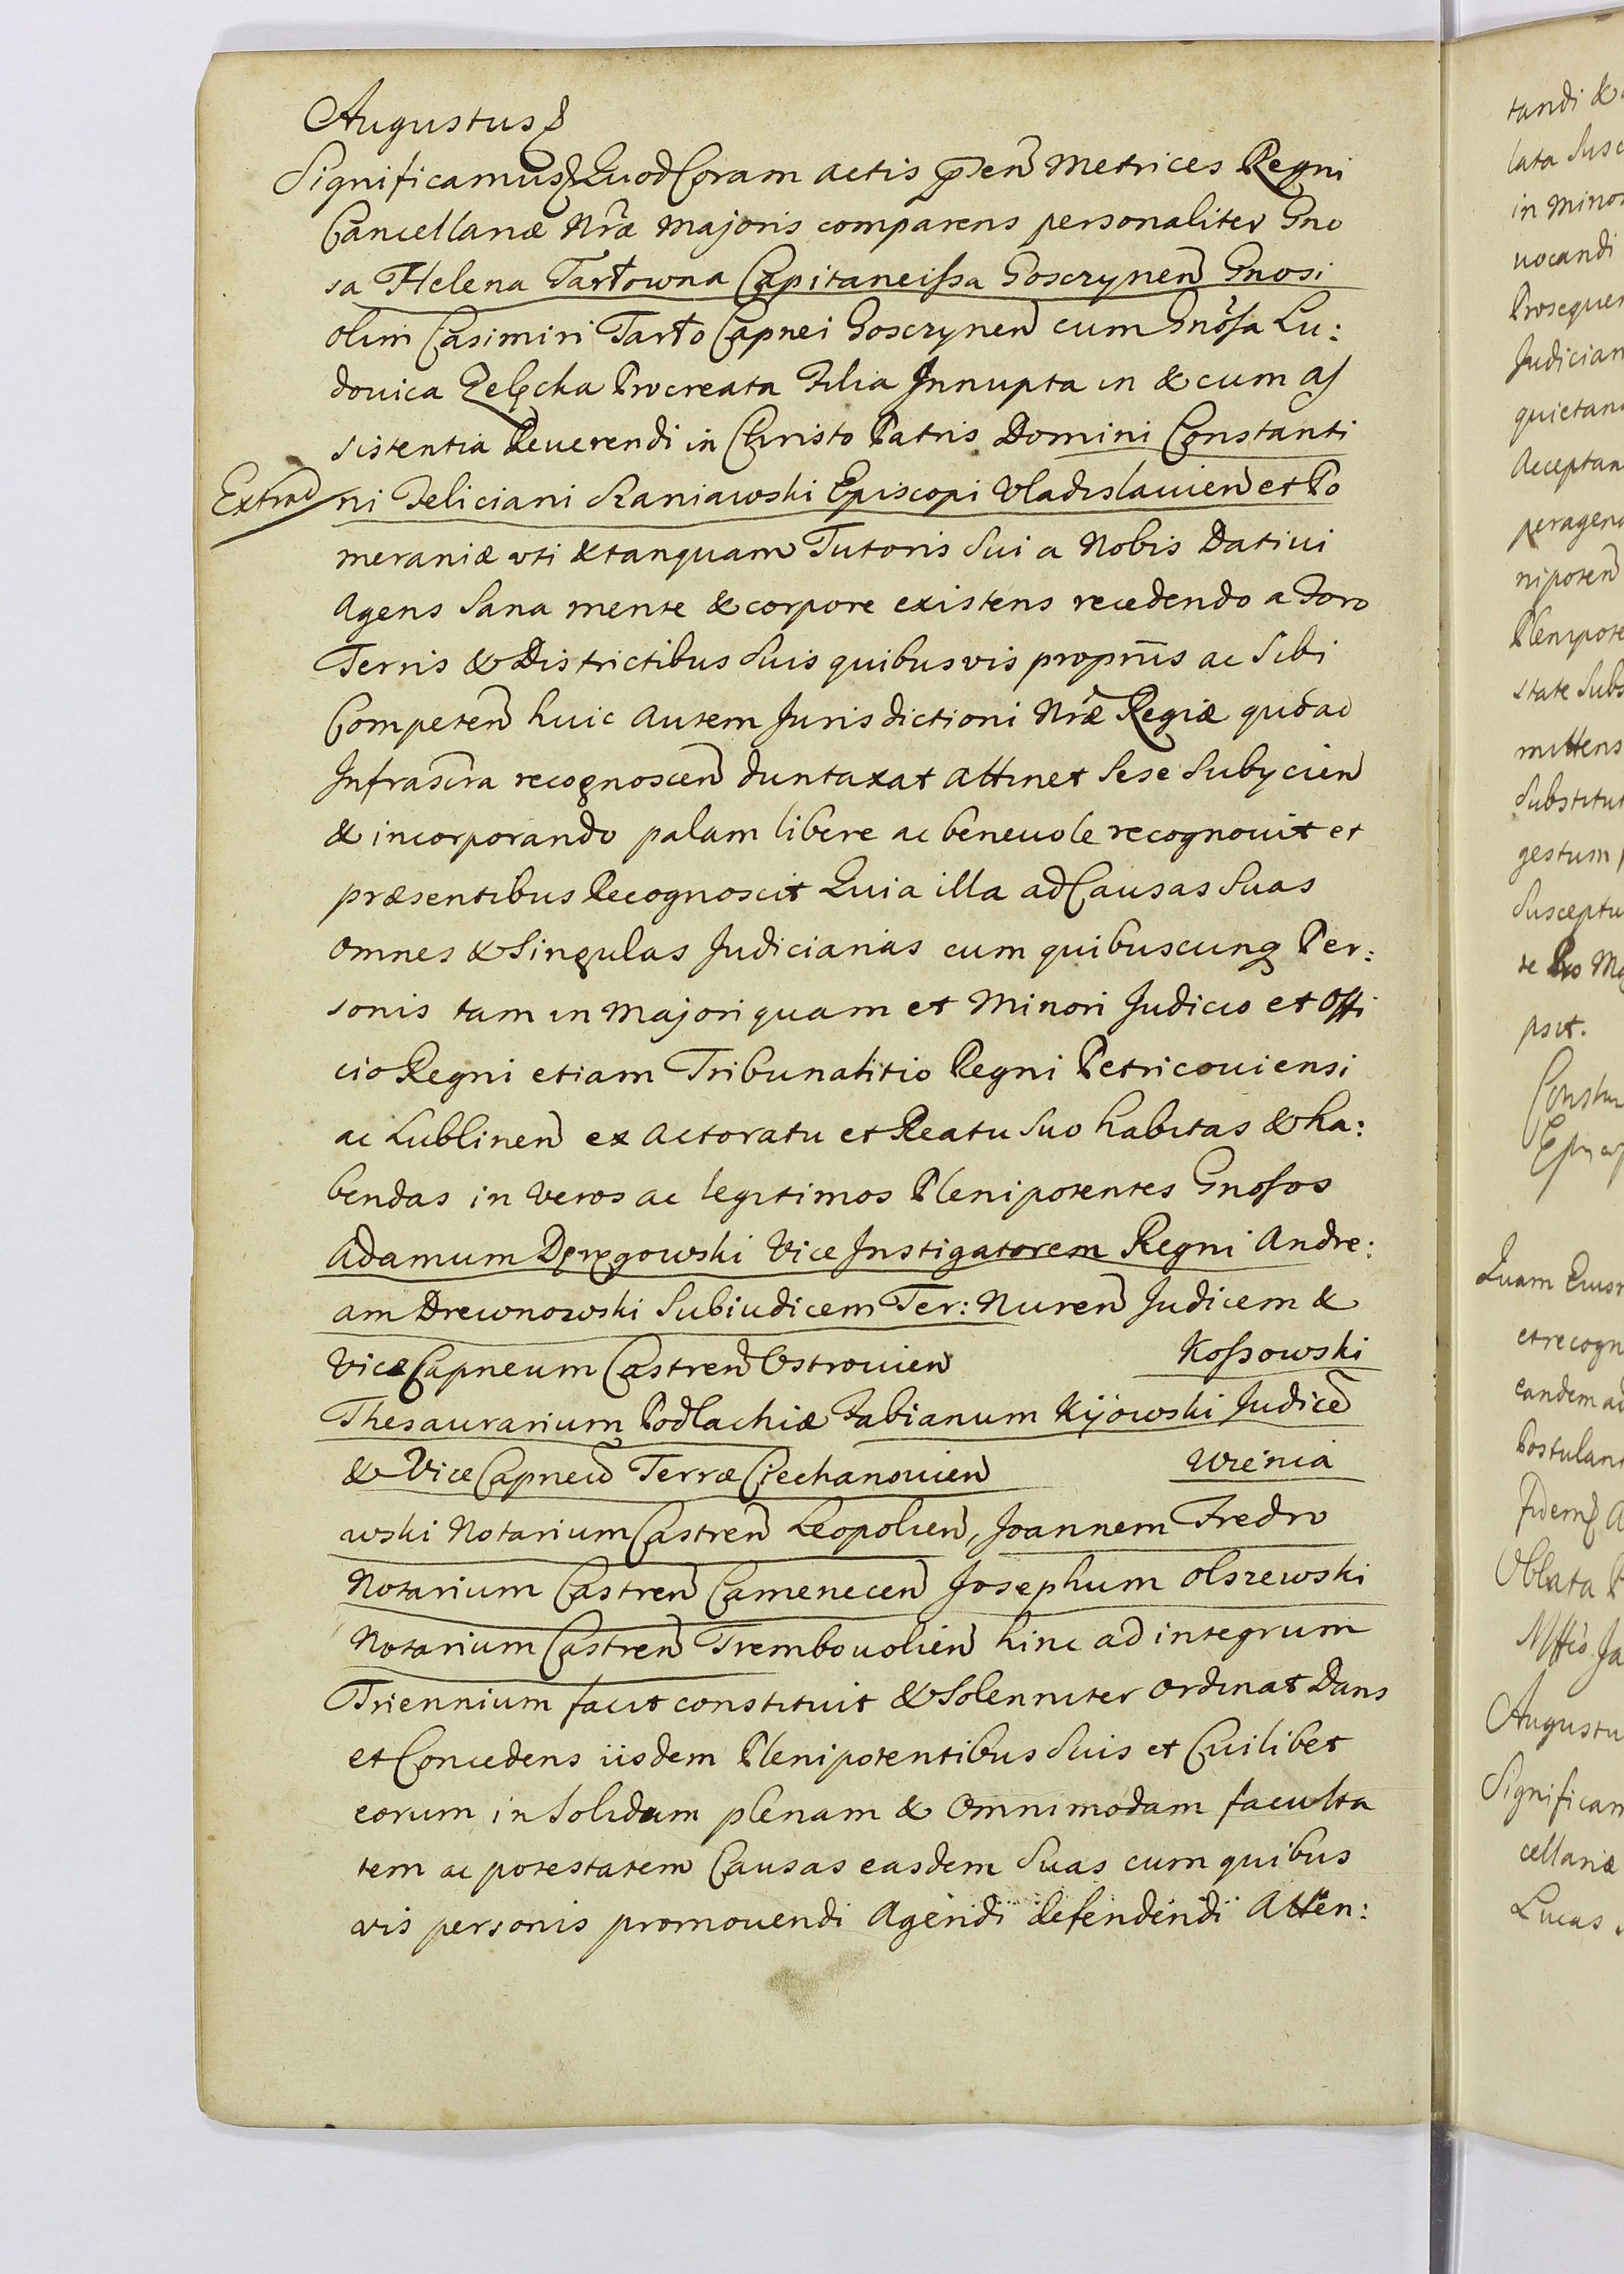 Augustus &
Significamus & Quod Coram actis pñseñ Metrices Regni
Cancellariæ Nræ Majoris comparens personaliter Gno
sa Helena Tarłowna Capitaneissa Goscrynen Gnosi
olim Casimiri Tarło Capnei Goscrynen cum Gnosa Lu:
dovica Zelęcka Procreata Filia Innupta in & cum as
sistentia Reuerendi in Christo Patris Domini Constanti
Extrad
ni Feliciani Szaniawski Episcopi Vladislauien et Po
meraniæ uti & tanquam Tutoris Sui a Nobis Datiui
Agens Sana mente & corpore existens recedendo a Foro
Terris & Districtibus Suis quibusvis proprys ac Sibi
Competen huic autem Jurisdictioni Nræ Regiæ quoad
Infrascra recognoscen duntaxat attinet Sese Subycien
& incorporando palam libere ac beneuole recognouit et
præsentibus Recognoscit Quia illa ad Causas Suas
omnes & Singulas Judiciarias cum quibuscunq Per:
sonis tam in Majori quam et Minori Judicio et Offi
cio Regni etiam Tribunalitio Regni Petricouiensi
ac Lublinen ex Actoratu et Reatu Suo habitas & ha:
bendas in veros ac legitimos Plenipotentes Gnosos
Adamum Dęręgowski Vice Instigatorem Regni Andre:
am Drewnowski Subiudicem Ter: Nuren Judicem &
Vice Capneum Castren Ostrouien Kossowski
Thesaurarium Podlachiæ Fabianum Kijowski Judicē
& Vice Capneū Terræ Ciechanouien Wienia
wski Notarium Castren Leopolien, Joannem Fredro
Notarium Castren Camenecen Josephum Olszewski
Notarium Castren Trembouolien hinc ad integrum
Triennium facit constituit & Solenniter ordinat Dans
et Concedens iisdem Plenipotentibus Suis et Cuilibet
eorum in Solidum plenam & Omnimodam faculta
tem ac potestatem Causas easdem Suas cum quibus
vis personis promouendi Agendi defendendi Atten:
tandi &
lata Susc
in minor
uocandi
Prosequen
Judiciar
quietan
Acceptan
peragen
nipoten
Plenipote
state Subs
mittens
Substitut
gestum
Susceptu
te Pro Ma
psit.
Constan
Episcop
Quam Euor
et recogn
eandem ad
Postulan
fidem A
Oblata
Ja
Augustu
Significam
cellariæ
Lucas